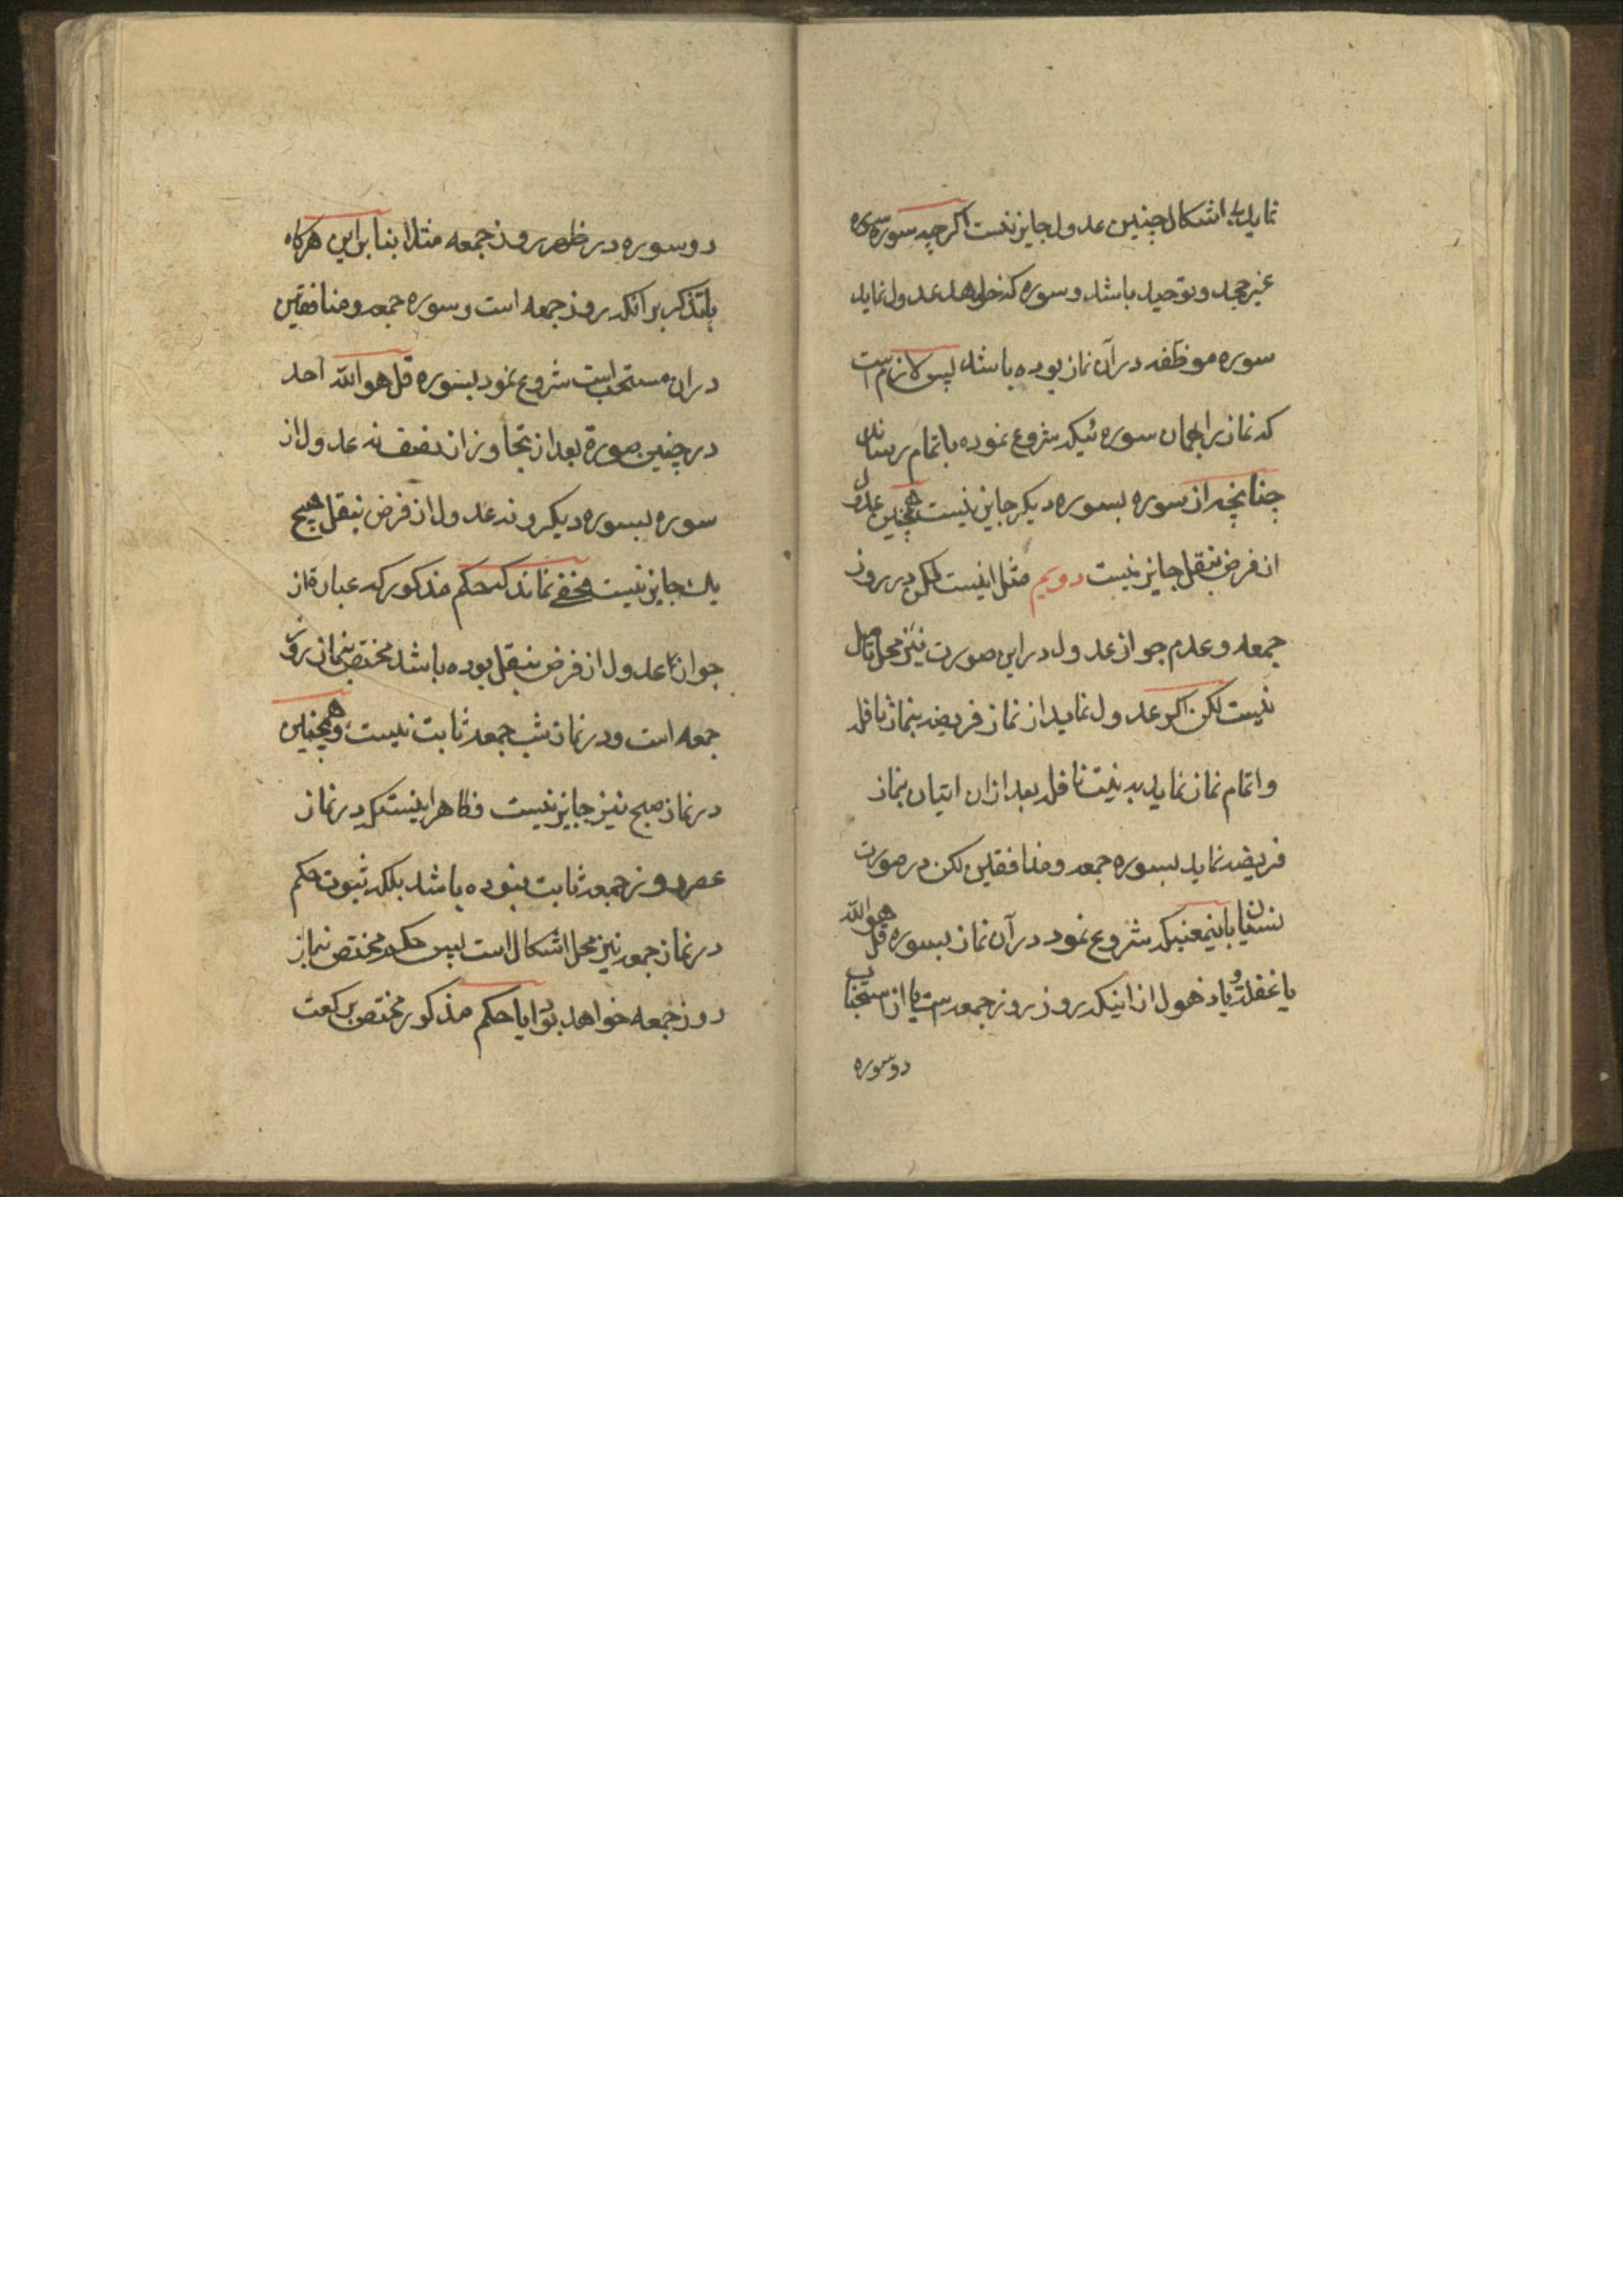 نماید بی اشکال چنین عدول جایز نیست اکرچه سوره
غیر جحد و توحید باشد و سوره که خواهد عدول نماید
سوره موظفه در آن نماز بوده باشد پس لازم است
که نماز بر همان سوره ئیکه شروع نموده باتمام رساند
چنانچه از سوره بسوره دیکر جایز نیست همچنین عدول
از فرض بنفل جایز نیست دویم مثل اینست لکن در روز
جمعه و عدم جواز عدول در این صورت نیز محل تامل
نیست لکن اکر عدول نماید از نماز فریضه بنماز نافله
و اتمام نماز نماید به نیت نافله بعد از ان اتیان بنماز
فریضه نماید بسوره جمعه و منافقین لکن در صورت
نسیان باینمعنیکه شروع نمود در آن نماز بسوره قل هو الله
یا غفلة و یا ذهول از اینکه روز روز جمعه است یا از استحباب
دو سوره
دو سوره در ظهر روز جمعه مثلا بنابراین هرکاه
با تذکر بر انکه روز جمعه است و سوره جمعه و منافقین
در ان مستحب است شروع نمود بسوره قل هو الله احد
در چنین صورة بعد از تجاوز از نصف نه عدول از
سوره بسوره دیکر و نه عدول از فرض بنفل هیچ
یك جایز نیست مخفی نماند که حکم مذکور که عبارة از
جواز عدول از فرض بنفل بوده باشد مختص بنماز روز
جمعه است و در نماز شب جمعه ثابت نیست و همچنین
در نماز صبح نیز جایز نیست و ظاهر اینست که در نماز
عصر روز جمعه ثابت نبوده باشد بلکه ثبوت حکم
در نماز جمعه نیز محل اشکال است پس حکم مختص بنماز
روز جمعه خواهد بود ایا حکم مذکور مختص برکعت